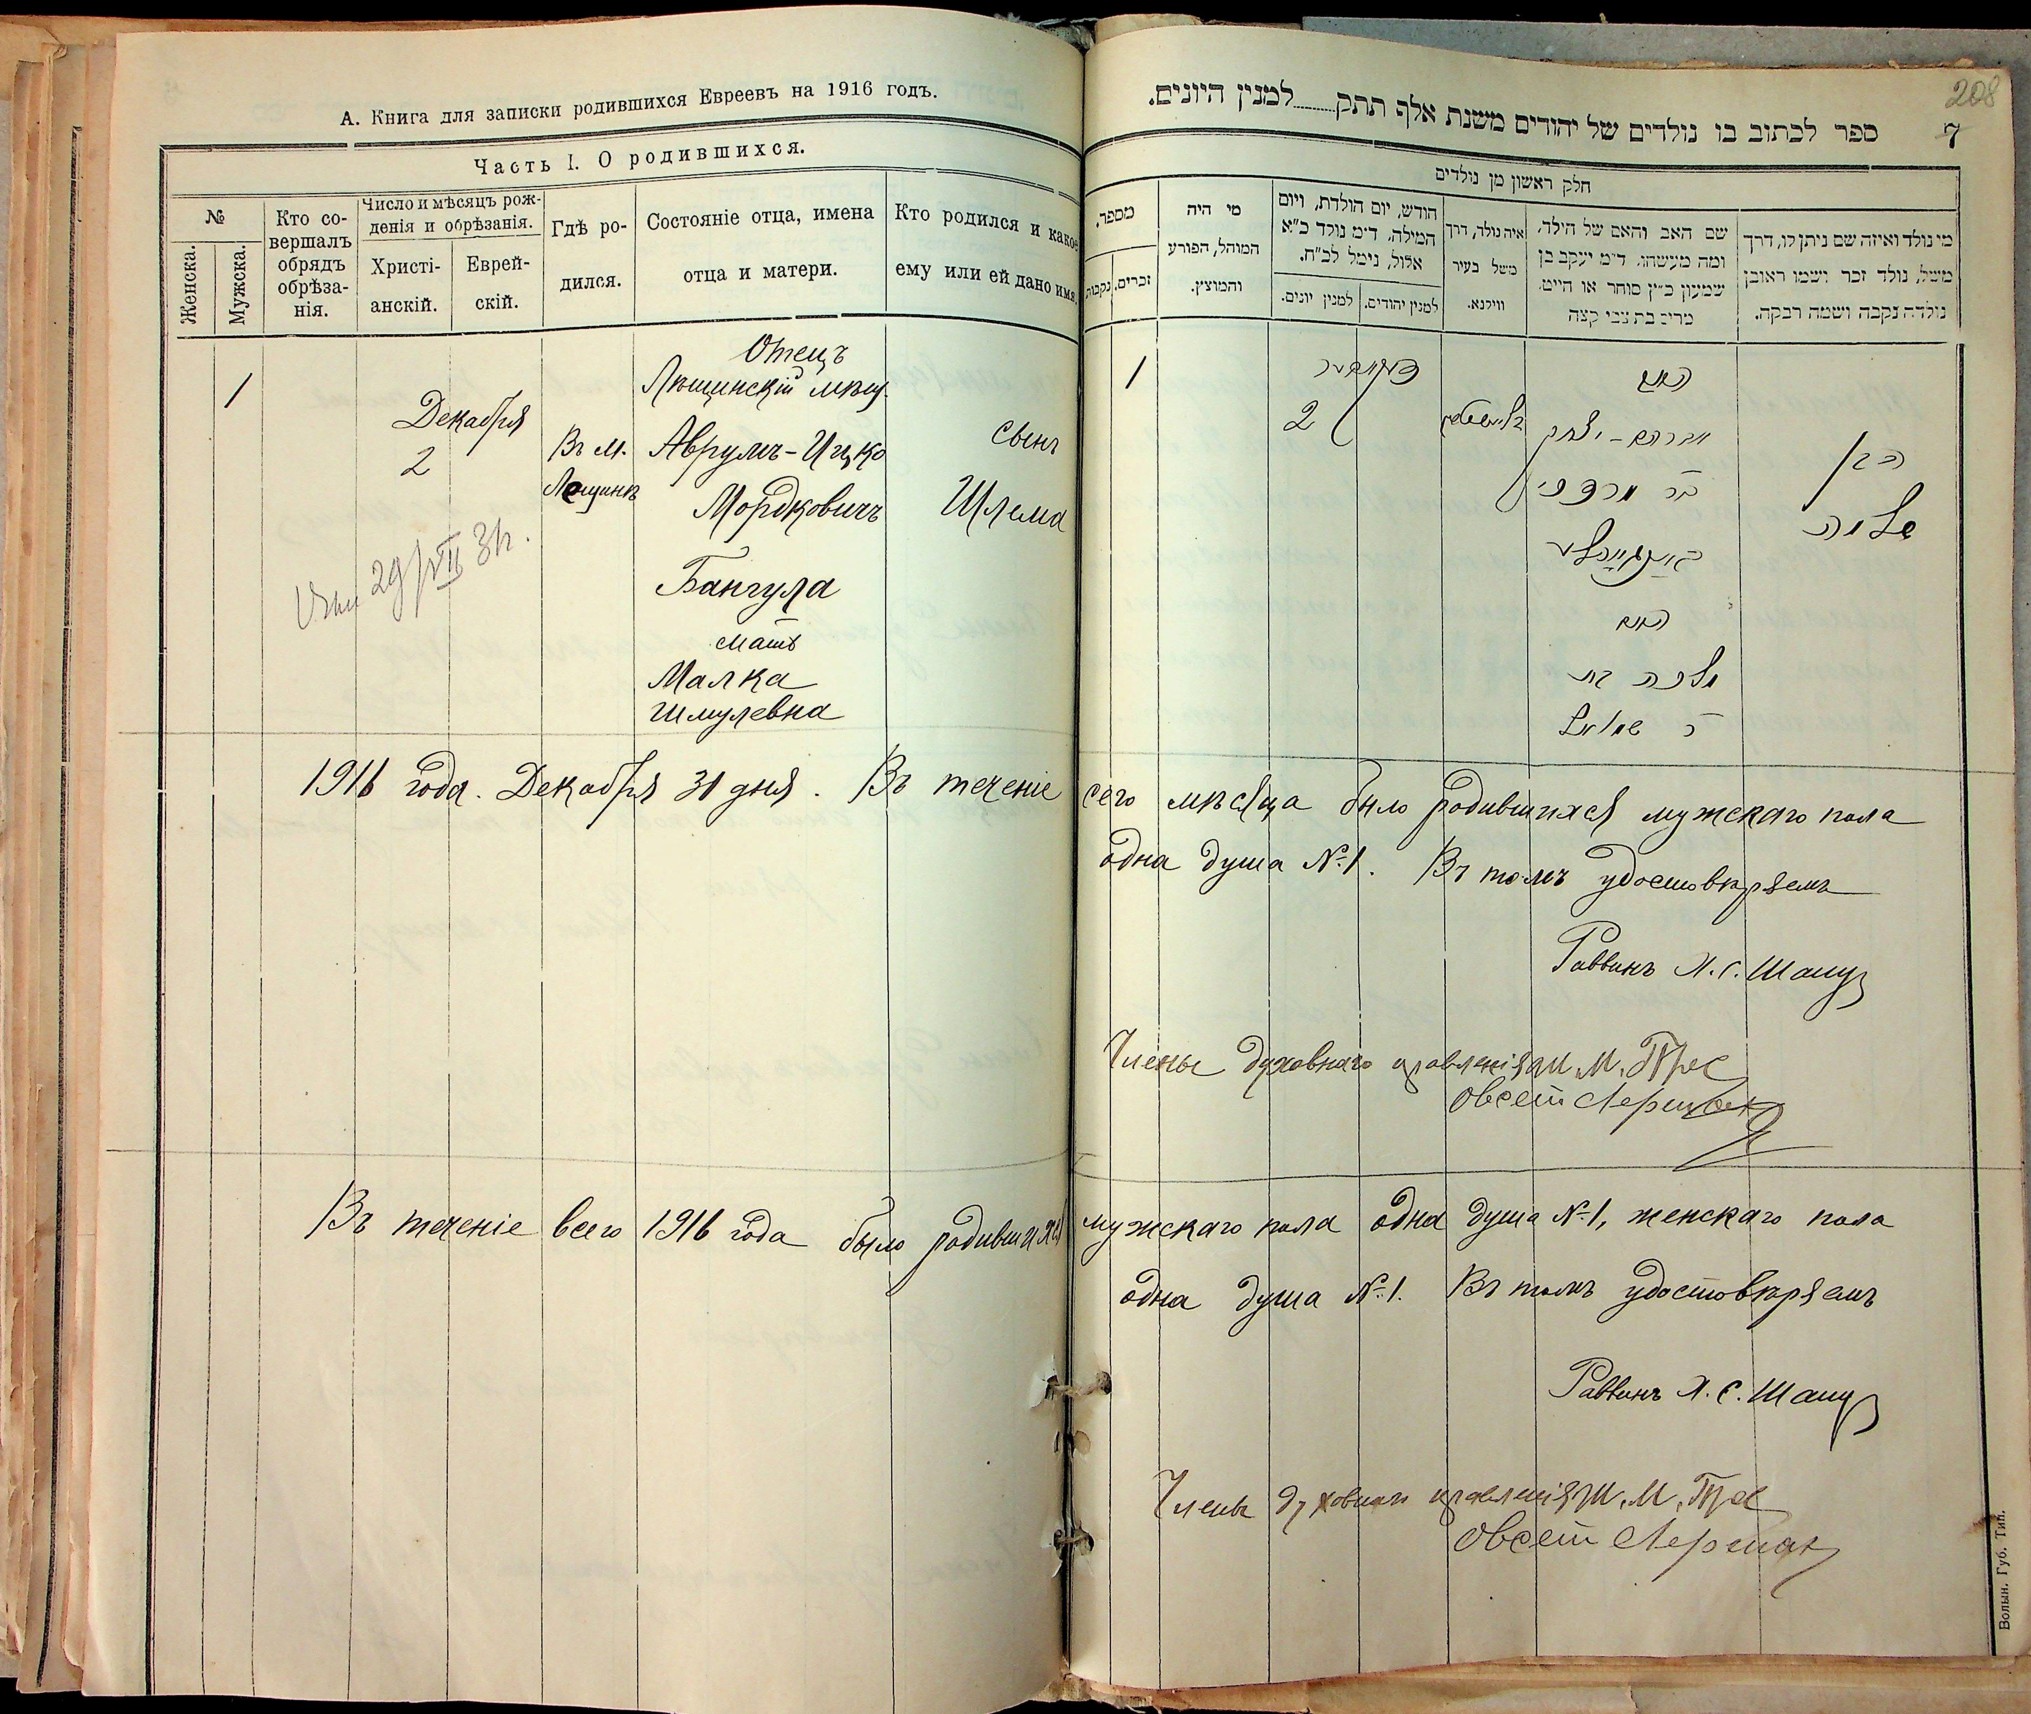 А. Книга для записки родившихся Евреевъ на 1916 годъ.
Часть I. О родившихся.
№
Женска.
Мужска.
Кто со-
вершалъ
обрядъ
обрѣза-
нія.
Число и мѣсяцъ рож-
денія и обрѣзанія.
Христі-
анскій.
Еврей-
скій.
Гдѣ ро-
дился.
Состояніе отца, имена
отца и матери.
Кто родился и какое
ему или ей дано имя.
1
Декабря
2
Въ м.
Лещинѣ
Отецъ
Лещинскій мѣщ.
Аврумъ-Ицко
Мордковичъ
Бангула
мать
Малка
Шмулевна
сынъ
Шлема
29/VII 31г.
1916 года. Декабря 31 дня. Въ теченіе
Въ теченіе всего 1916 года было родившихся
208
7
ספר לכתוב בו נולדים של יהודים משנת אלף תתק........למנין היונים.
חלק ראשון מן נולדים
מי נולד ואיזה שם ניתן לו, דרך
משל, נולד זכר ושמו ראובן
נולדה נקבה ושמה רבקה.
שם האב והאם של הילד,
ומה מעשהו, ד״מ יעקב בן
שמעון כ״ץ סוחר או חייט,
מרים בת צבי קצה
איה נולד, דרך
משל בעיר
ווילנא.
חודש, יום הולדת, ויום
המילה, ד״מ נולד כ״א
אלול, נימל לכ״ח.
למנין יהודים.
למנין יונים.
מי היה
המוהל, הפורע
והמוצץ.
מספר.
זכרים.
נקבות.
הבן
שלמה
האב
אברהם-יצחק
בר מרדכי
האם
מלכה בת
ר שמואל
דעקאבער
2
1
сего мѣсяца было родившихся мужскаго пола
одна душа №1. Въ томъ удостовѣряемъ
Раввинъ Л. С. Шапиро
Члены духовнаго правленія Ш. М. Трес
Овсей Лерман
мужскаго пола одна душа №1, женскаго пола
одна душа №1. Въ томъ удостовѣряемъ
Раввинъ Л. С. Шапиро
Члены духовнаго правленія Ш. М. Трес
Овсей Лерман
Волын. Губ. Тип.